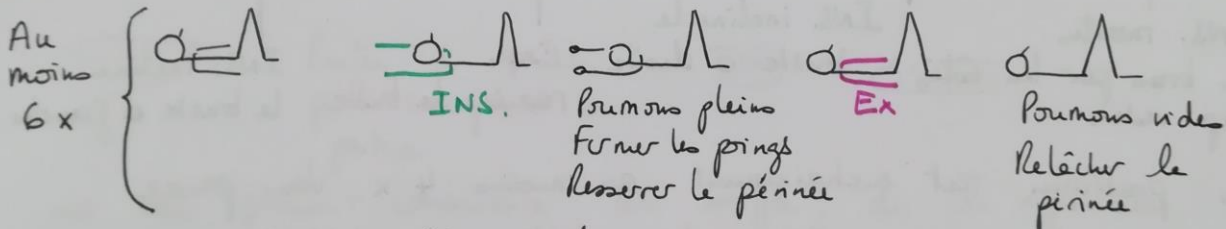 Au
moins
6 x
INS.
Poumons pleins
Fermer les poings
Resserrer le périnée
Ex
Poumons vides
Relâcher le
périnée